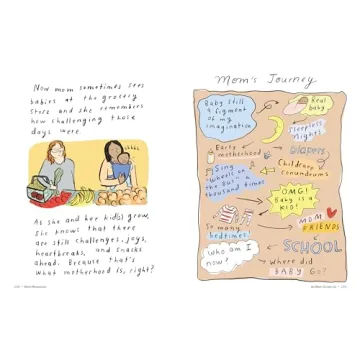 Now mom sometimes sees
babies at the grocery
store and she remembers
how challenging those
days were.
shhh
As she and her kid(s) grow,
she knows that there
are still challenges, joys,
heartbreaks, and snacks
ahead. Because that's
what motherhood is, right?
Mom's Journey
Baby still
a figment
of my
imagination
Real
baby
Sleepless
nights
Early
motherhood
Diapers
Childcare
conundrums
Sing
"Wheels on
the Bus" a
thousand times
OMG!
Baby is a
KID!
So many
bedtimes
MOM
FRIENDS
SCHOOL
Who am I
now?
Where did
BABY Go?